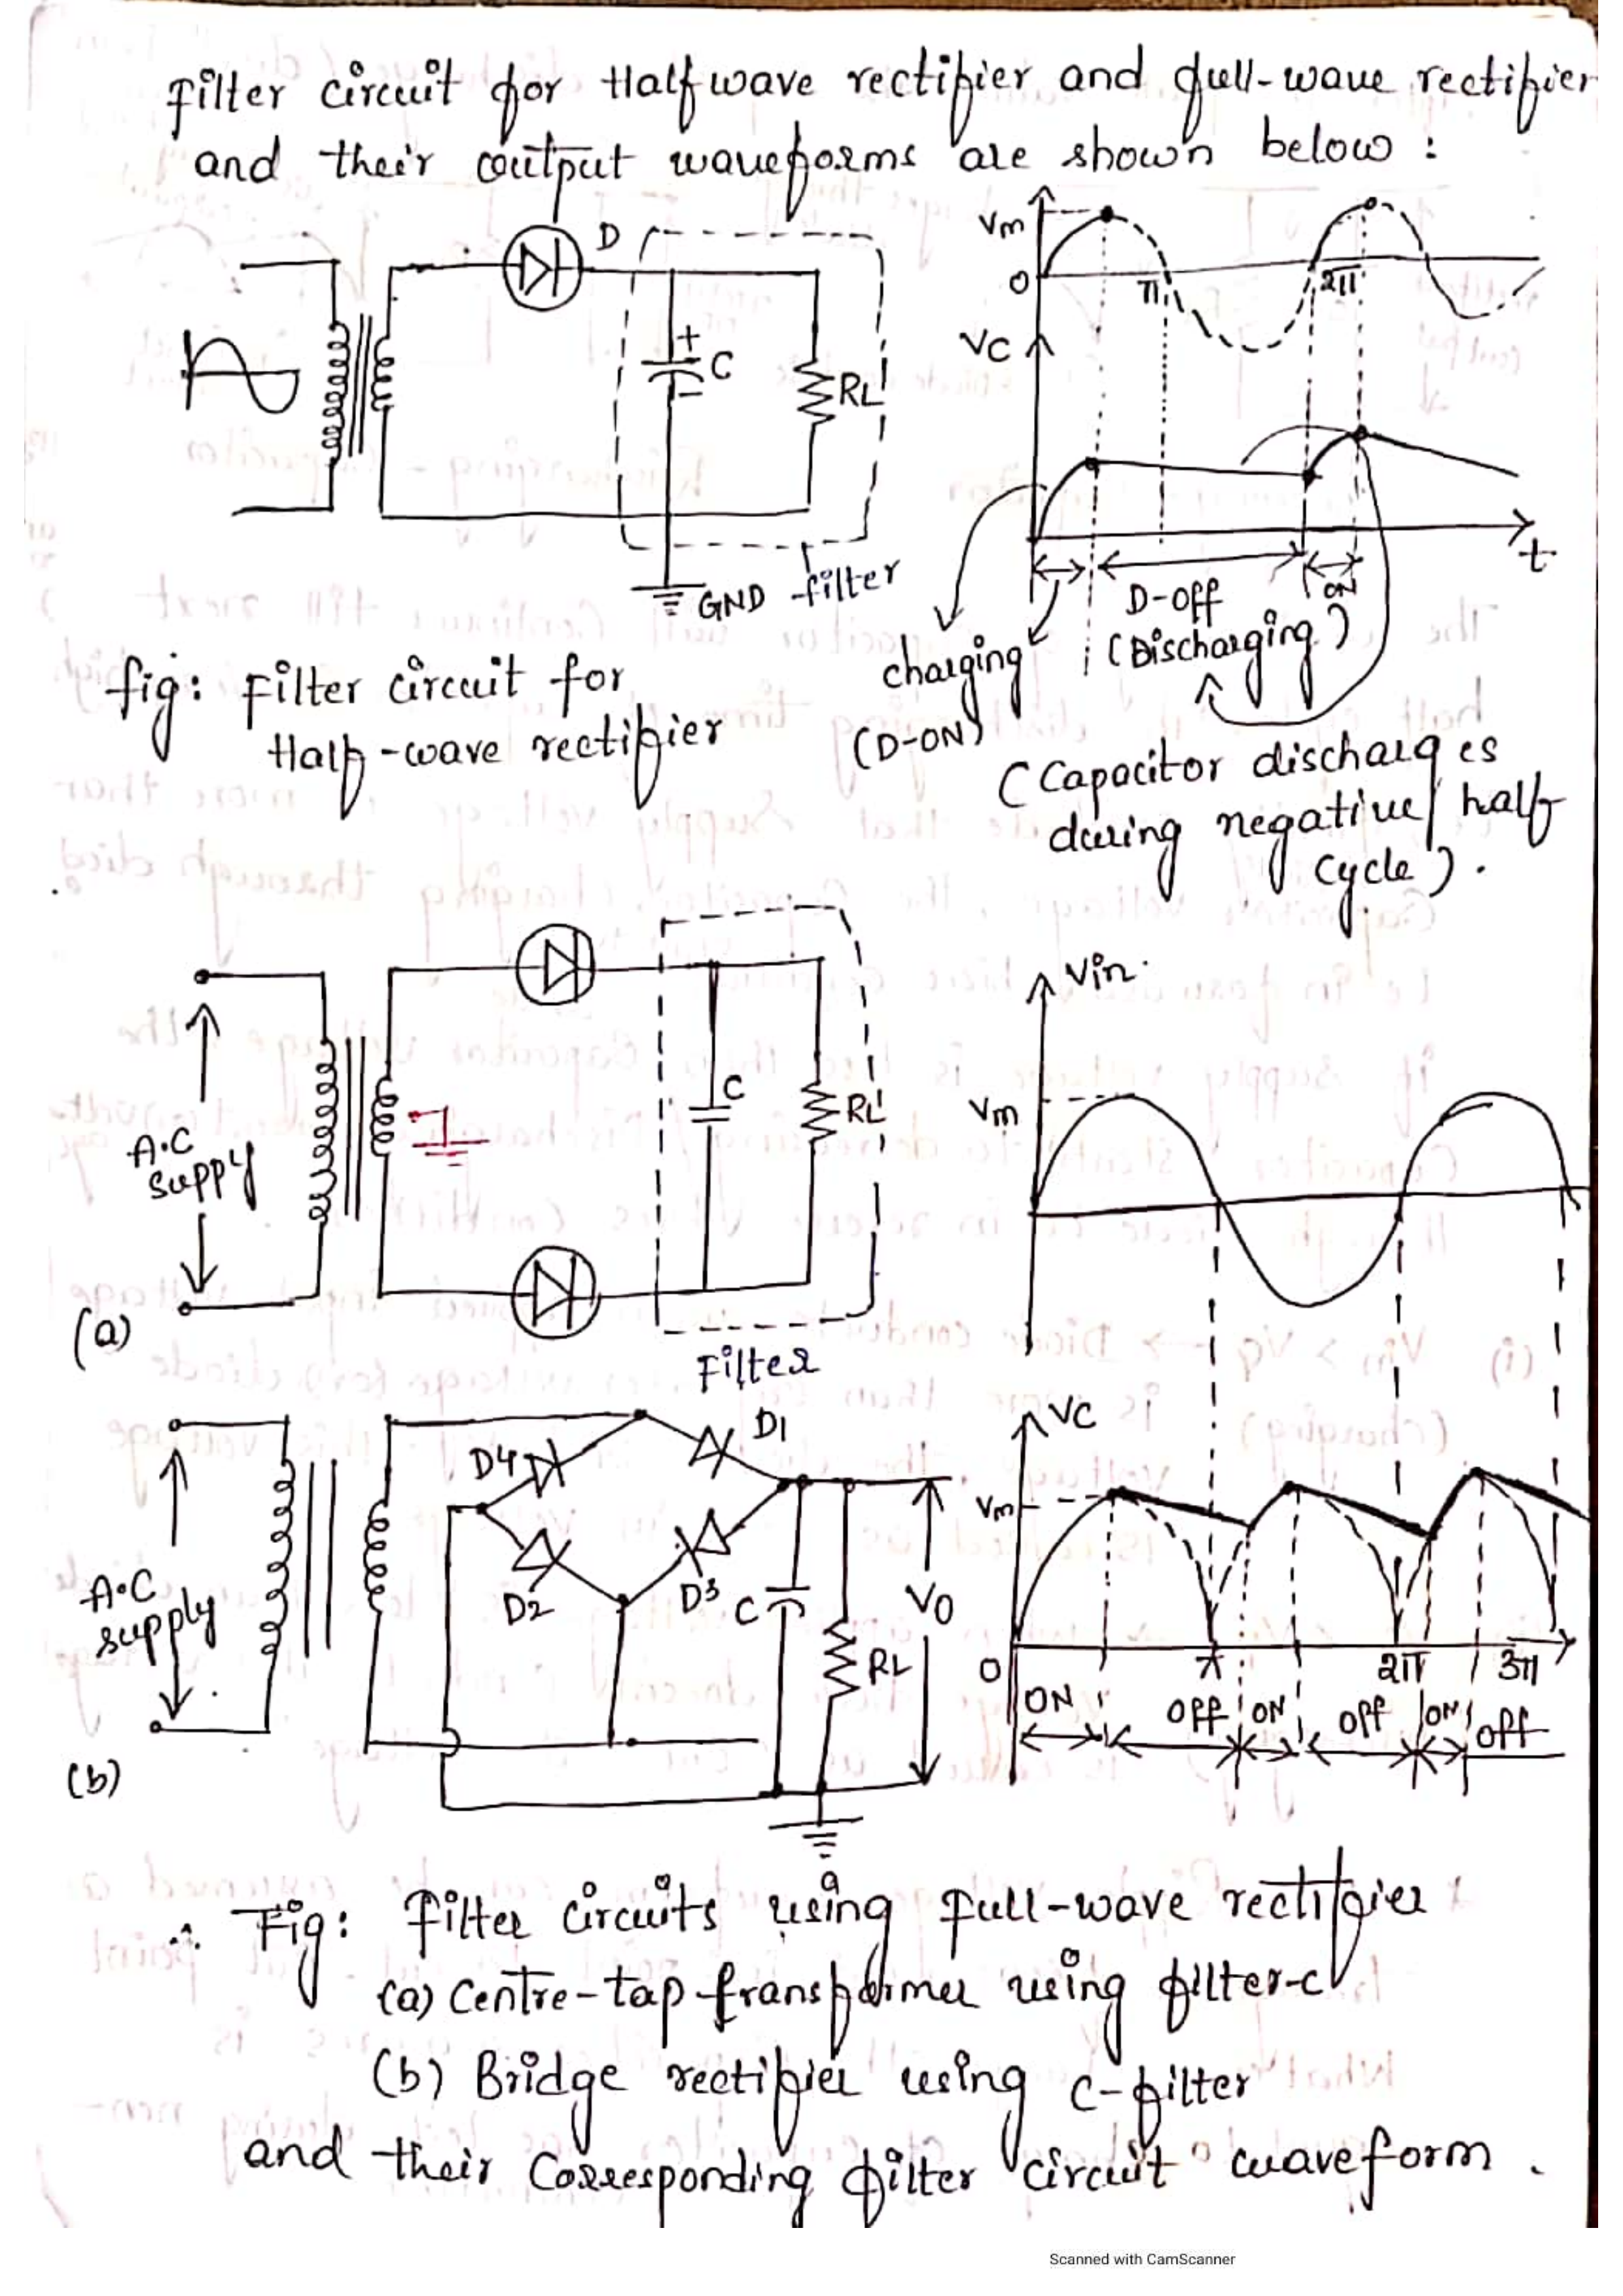 Filter circuit for Half wave rectifier and full-wave rectifier
and their output waveforms are shown below :
D
+
C
-
RL
GND
filter
Vm
0
π
2π
VC
t
D-off
ON
(Discharging)
charging
(D-ON)
(Capacitor discharges
during negative half
cycle).
fig: Filter circuit for
Half-wave rectifier
A.C
supply
C
RL
(a)
Filter
Vin
Vm
A.C
supply
D4
D1
D2
D3
C
RL
VO
(b)
VC
Vm
0
π
2π
3π
ON
off
ON
off
ON
off
∴ Fig: Filter circuits using full-wave rectifier
(a) Centre-tap transformer using filter-c
(b) Bridge rectifier using c-filter
and their corresponding filter circuit waveform.
Scanned with CamScanner